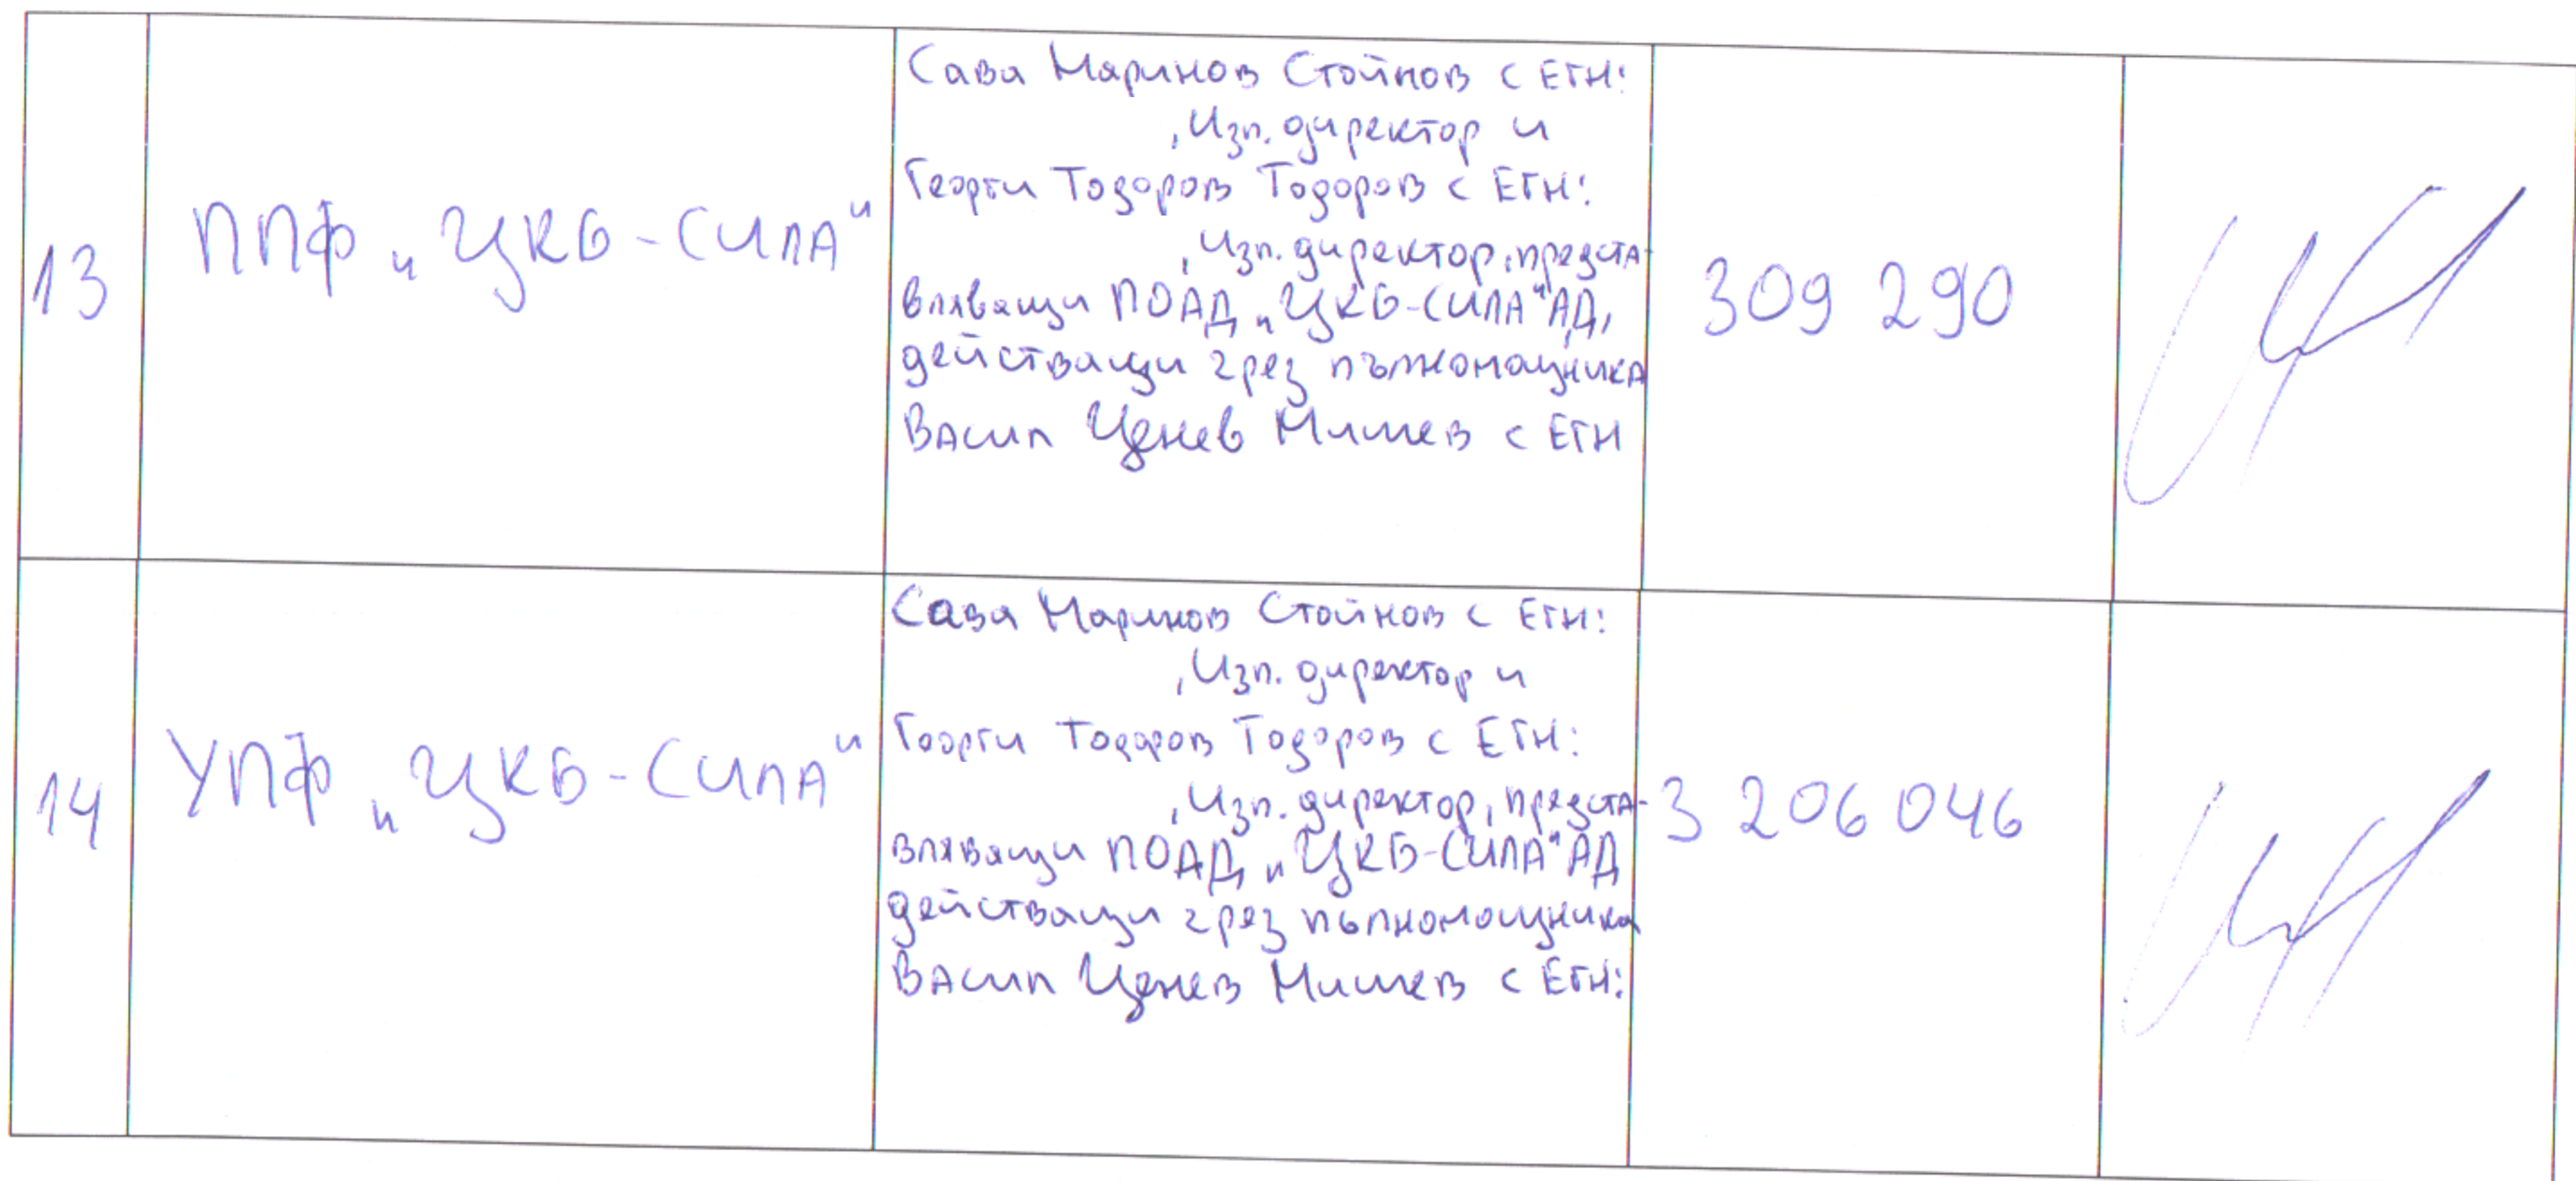 13
ППФ „ЦКБ-СИЛА“
Сава Маринов Стойнов с ЕГН:
, Изп. директор и
Георги Тодоров Тодоров с ЕГН:
, Изп. директор, предста-
вляващи ПОАД „ЦКБ-СИЛА“ АД,
действащи чрез пълномощника
Васил Ценев Мишев с ЕГН
309 290
14
УПФ „ЦКБ-СИЛА“
Сава Маринов Стойнов с ЕГН:
, Изп. директор и
Георги Тодоров Тодоров с ЕГН:
, Изп. директор, предста-
вляващи ПОАД „ЦКБ-СИЛА“ АД
действащи чрез пълномощника
Васил Ценев Мишев с ЕГН:
3 206 046